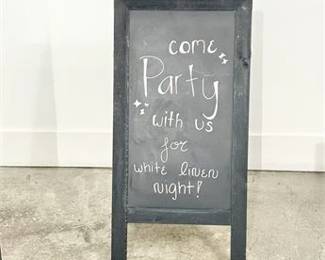 come
Party
with us
for
white linen
night!